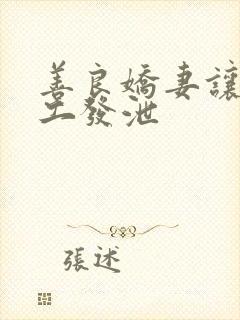 善良嬌妻讓
工發泄
張述